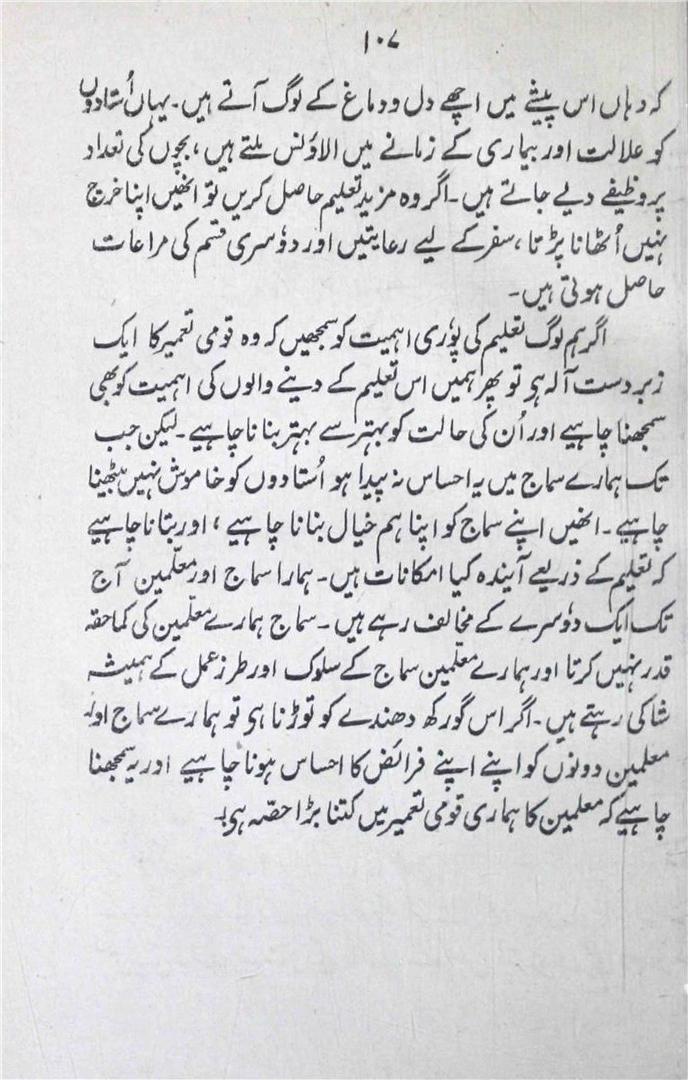 ۱۰۷
کہ وہاں اس پیشے میں اچھے دل و دماغ کے لوگ آتے ہیں۔ یہاں اُستادوں
کو علالت اور بیماری کے زمانے میں الاؤنس ملتے ہیں، بچوں کی تعداد
پر وظیفے دیے جاتے ہیں۔ اگر وہ مزید تعلیم حاصل کریں تو انھیں اپنا خرچ
نہیں اُٹھانا پڑتا، سفر کے لیے رعایتیں اور دوُسری قسم کی مراعات
حاصل ہوتی ہیں۔
اگر ہم لوگ تعلیم کی پوُری اہمیت کو سمجھیں کہ وہ قومی تعمیر کا ایک
زبردست آلہ ہی تو پھر ہمیں اس تعلیم کے دینے والوں کی اہمیت کو بھی
سمجھنا چاہیے اور اُن کی حالت کو بہتر سے بہتر بنانا چاہیے۔ لیکن جب
تک ہمارے سماج میں یہ احساس نہ پیدا ہو اُستادوں کو خاموش نہیں بیٹھنا
چاہیے۔ انھیں اپنے سماج کو اپنا ہم خیال بنانا چاہیے، اور بتانا چاہیے
کہ تعلیم کے ذریعے آیندہ کیا امکانات ہیں۔ ہمارا سماج اور معلّمین آج
تک ایک دوُسرے کے مخالف رہے ہیں۔ سماج ہمارے معلّمین کی کماحقہ
قدر نہیں کرتا اور ہمارے معلّمین سماج کے سلوک اور طرز عمل کے ہمیشہ
شاکی رہتے ہیں۔ اگر اس گورکھ دھندے کو توڑنا ہی تو ہمارے سماج اور
معلمین دونوں کو اپنے اپنے فرائض کا احساس ہونا چاہیے اور یہ سمجھنا
چاہیے کہ معلمین کا ہماری قومی تعمیر میں کتنا بڑا حصّہ ہی۔